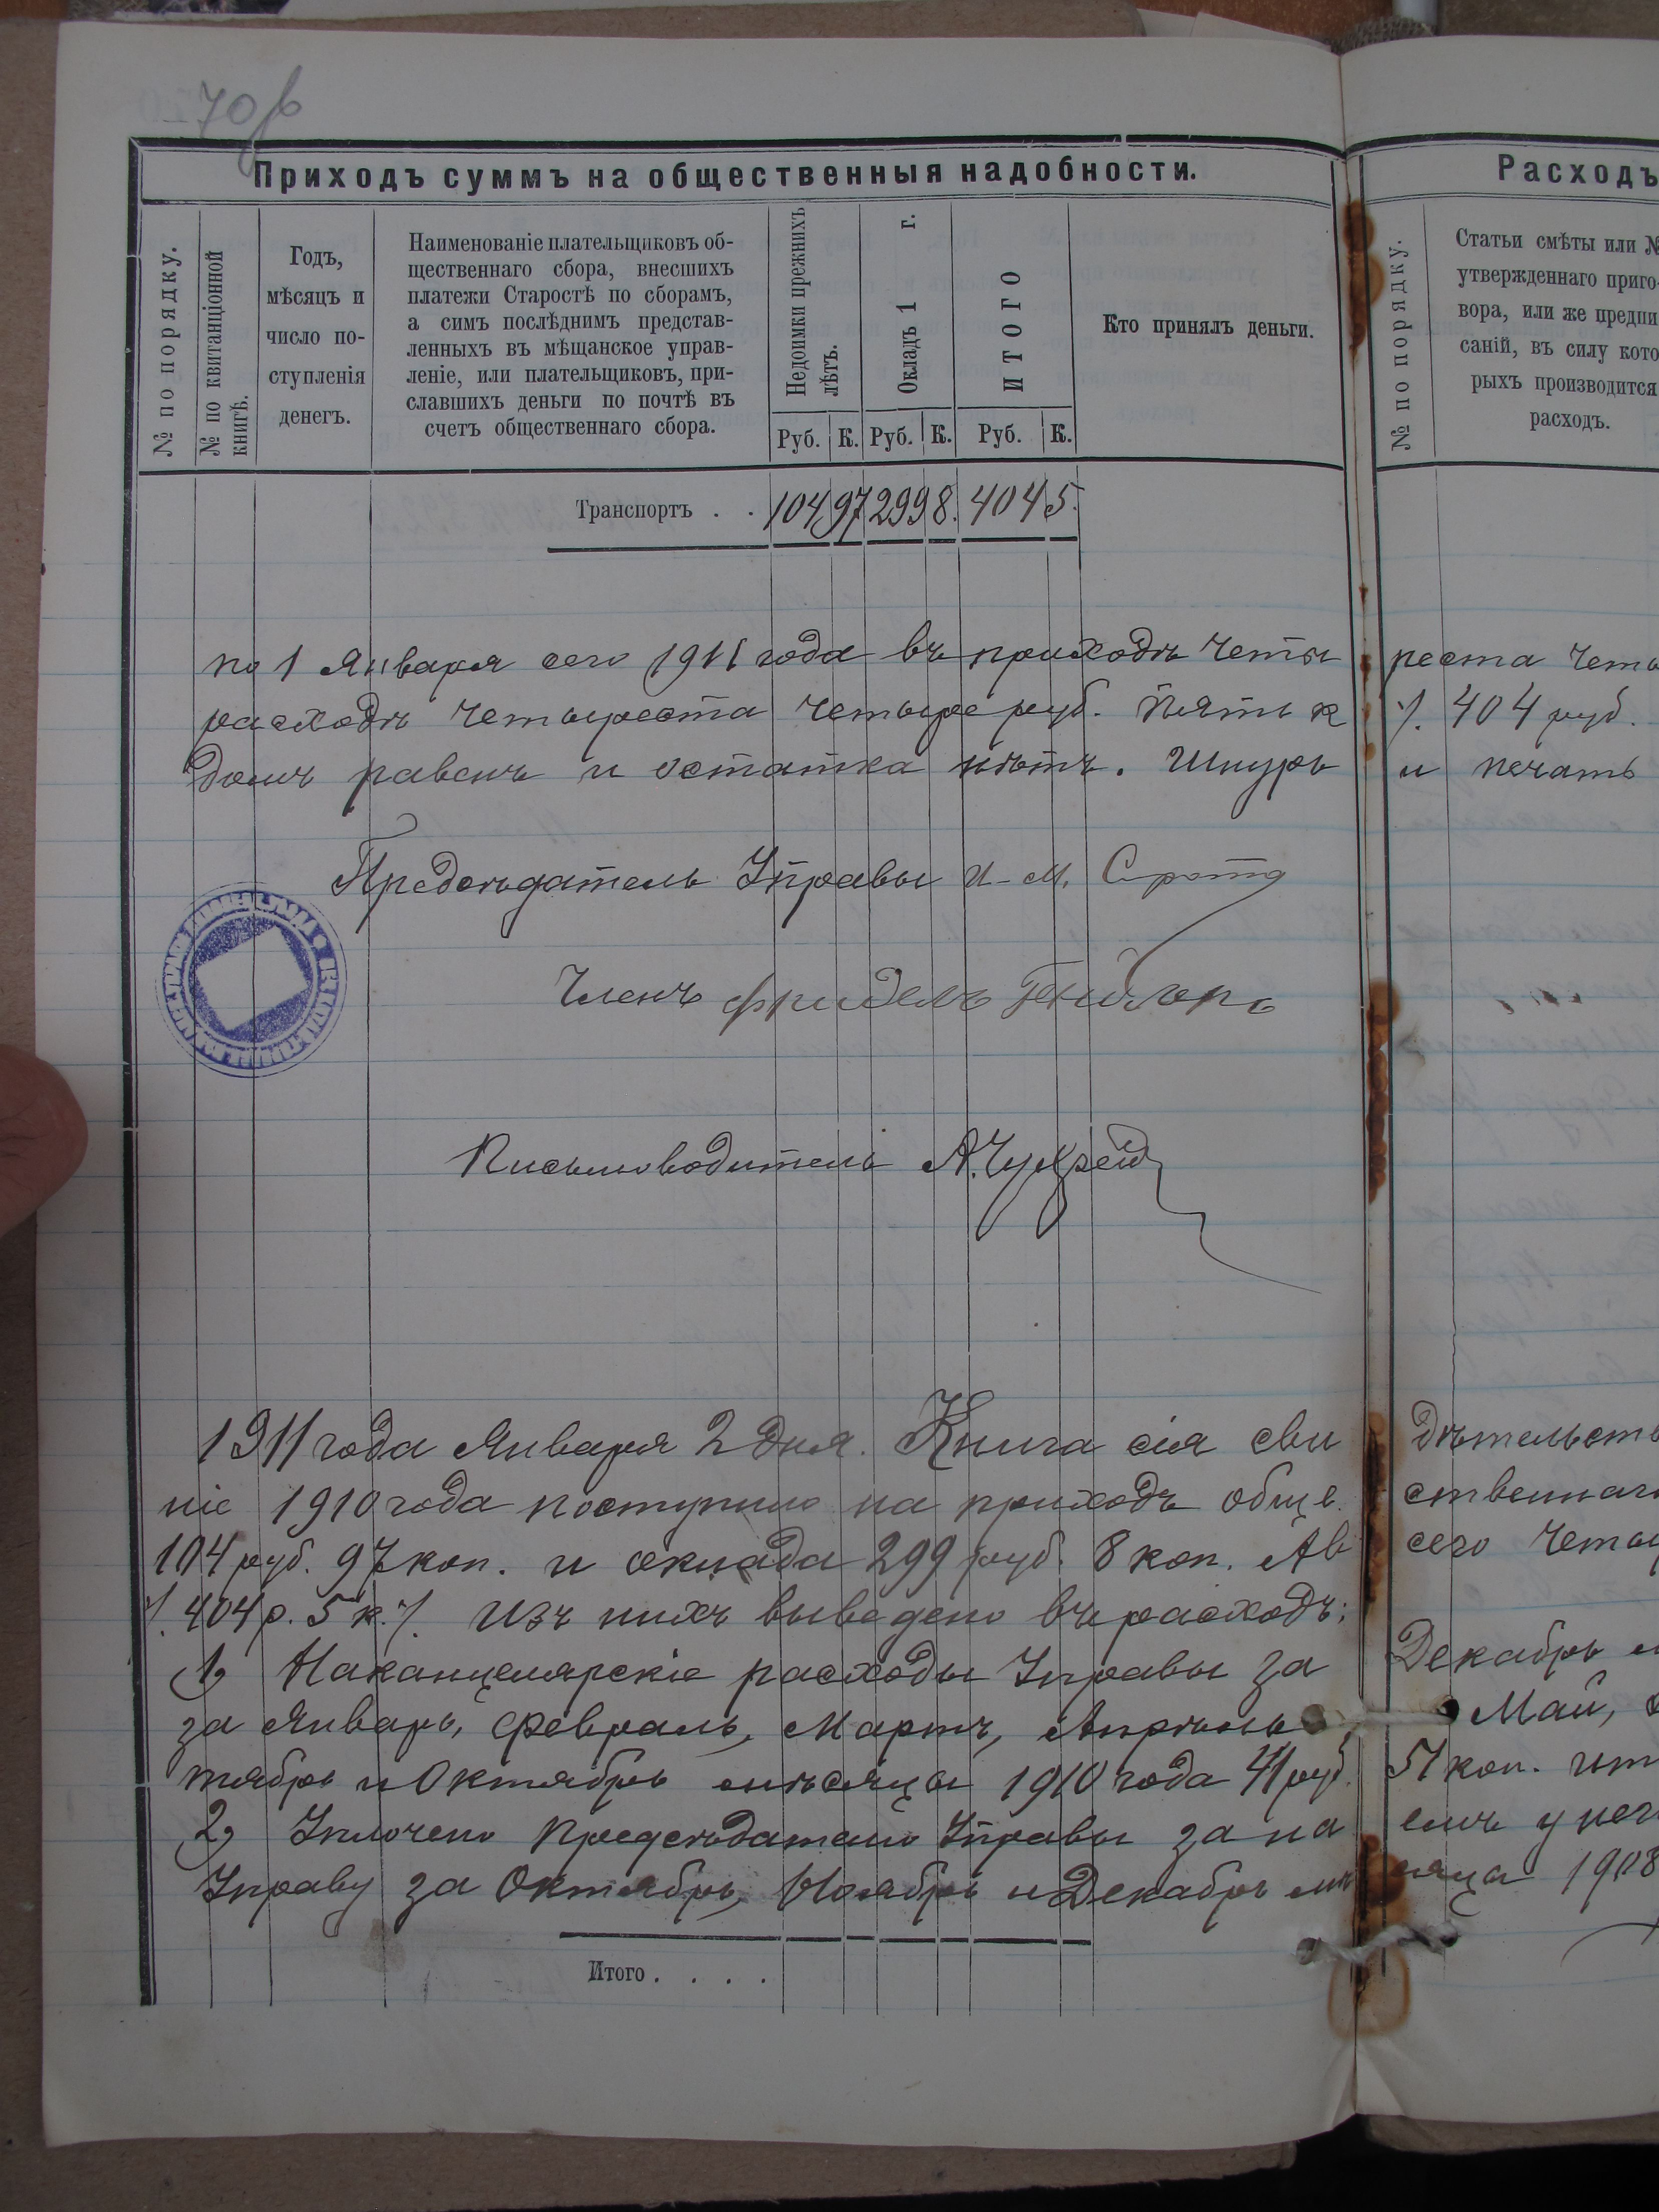 70
Приходъ суммъ на общественныя надобности.
Расходъ
№ по порядку.
№ по квитанціонной
книгѣ.
Годъ,
мѣсяцъ и
число по-
ступленія
денегъ.
Наименованіе плательщиковъ об-
щественнаго сбора, внесшихъ
платежи Старостѣ по сборамъ,
а симъ послѣднимъ представ-
ленныхъ въ мѣщанское управ-
леніе, или плательщиковъ, при-
славшихъ деньги по почтѣ въ
счетъ общественнаго сбора.
Недоимки прежнихъ
лѣтъ.
Руб. К.
Окладъ 1 г.
Руб. К.
ИТОГО
Руб. К.
Кто принялъ деньги.
№ по порядку.
Статьи смѣты или №
утвержденнаго приго-
вора, или же предпи
саній, въ силу кото
рыхъ производится
расходъ.
Транспортъ . . 104 97 299 8. 404 5.
по 1 Января сего 1911 года въ приходѣ четы реста четы
расходѣ четыреста четыре руб. пять к ./. 404 руб.
домъ равенъ и остатка нѣтъ. Шнуръ и печать
Предсѣдатель Управы И-М. Сирота
Членъ Фридель
Письмоводитель А. Чухрей
1911 года Января 2 дня. Книга сія сви дѣтельств
ніе 1910 года поступило на приходъ обще. ственнаго
104 руб. 97 коп. и оклада 299 руб. 8 коп. А в сего четы
./. 404 р. 5 к. ./. Изъ нихъ выведено въ расходъ:
1) На канцелярскіе расходы Управы за Декабрь м
за Январь, Февраль, Мартъ, Апрѣль Май,
тябрь и Октябрь мѣсяцы 1910 года 41 руб. 51 коп.
2) Уплочено Предсѣдателю Управы за на емъ у него
Управу за Октябрь, Ноябрь и Декабрь мѣ сяца 1908
Итого . . . .